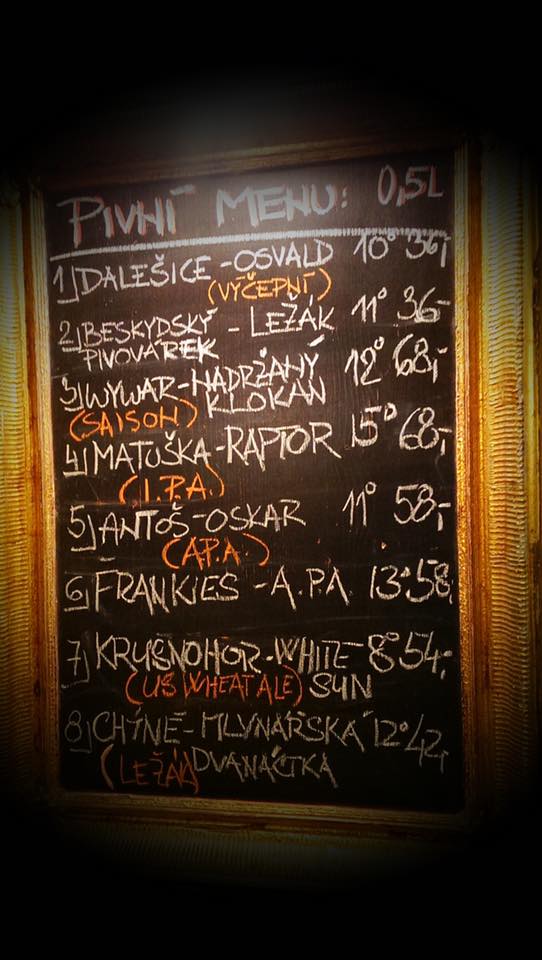 PIVNÍ MENU: 0,5L
1) DALEŠICE - OSVALD 10° 36,-
(VÝČEPNÍ)
2) BESKYDSKÝ - LEŽÁK 11° 36-
PIVOVÁREK
3) WYWAR - NADRŽANÝ 12° 68,-
(SAISON) KLOKAN
4) MATUŠKA - RAPTOR 15° 68,-
(I.P.A.)
5) ANTOŠ - OSKAR 11° 58,-
(A.P.A.)
6) FRANKIES - A.P.A 13° 58,
7) KRUŠNOHOR - WHITE 8° 54,-
(US WHEAT ALE) SUN
8) CHÝNĚ - MLYNÁŘSKÁ 12° 42,-
(LEŽÁK) DVANÁCTKA